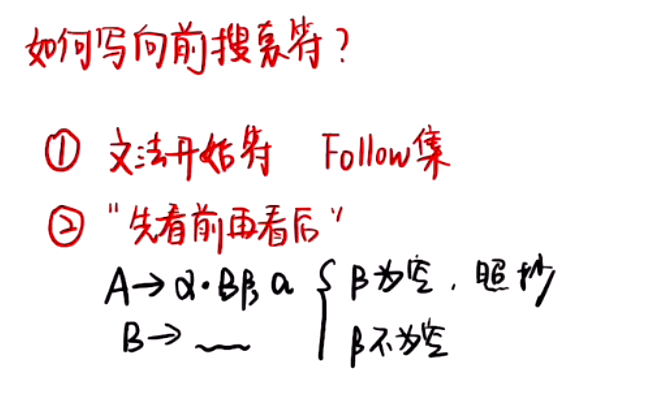 如何写向前搜索符？
① 文法开始符 Follow集
② "先看前再看后"
A→α·Bβ, a { β为空，照抄
B→ ___ β不为空